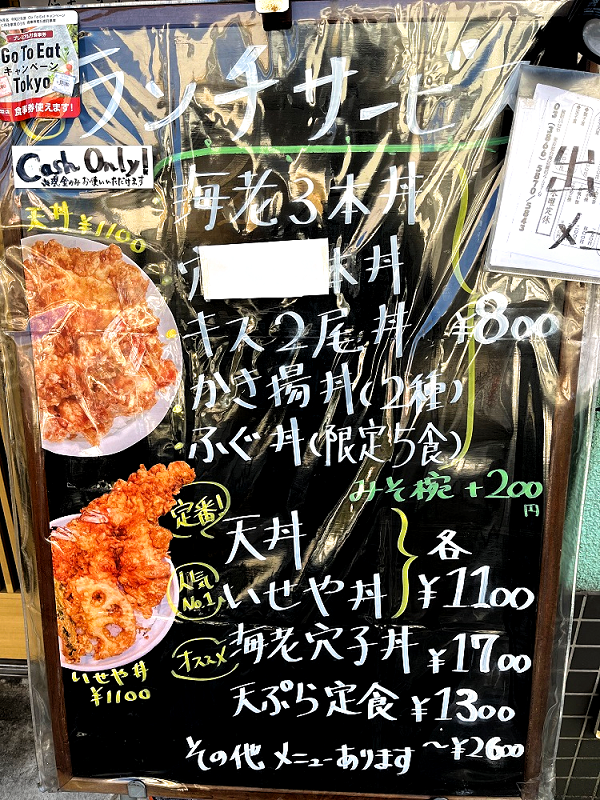 Go To Eat
キャンペーン
Tokyo
食事券使えます!
ランチサービ
Cash Only!
現金のみお使いいただけます
天丼 ¥1100
海老3本丼
穴 本丼
キス2尾丼
かき揚丼(2種)
ふぐ丼(限定5食)
¥800
みそ椀 +200円
定番!
天丼
人気No.1
いせや丼
各
¥1100
オススメ
海老穴子丼 ¥1700
天ぷら定食 ¥1300
その他 メニューあります ~¥2600
いせや丼
¥1100
出
メニ
定休